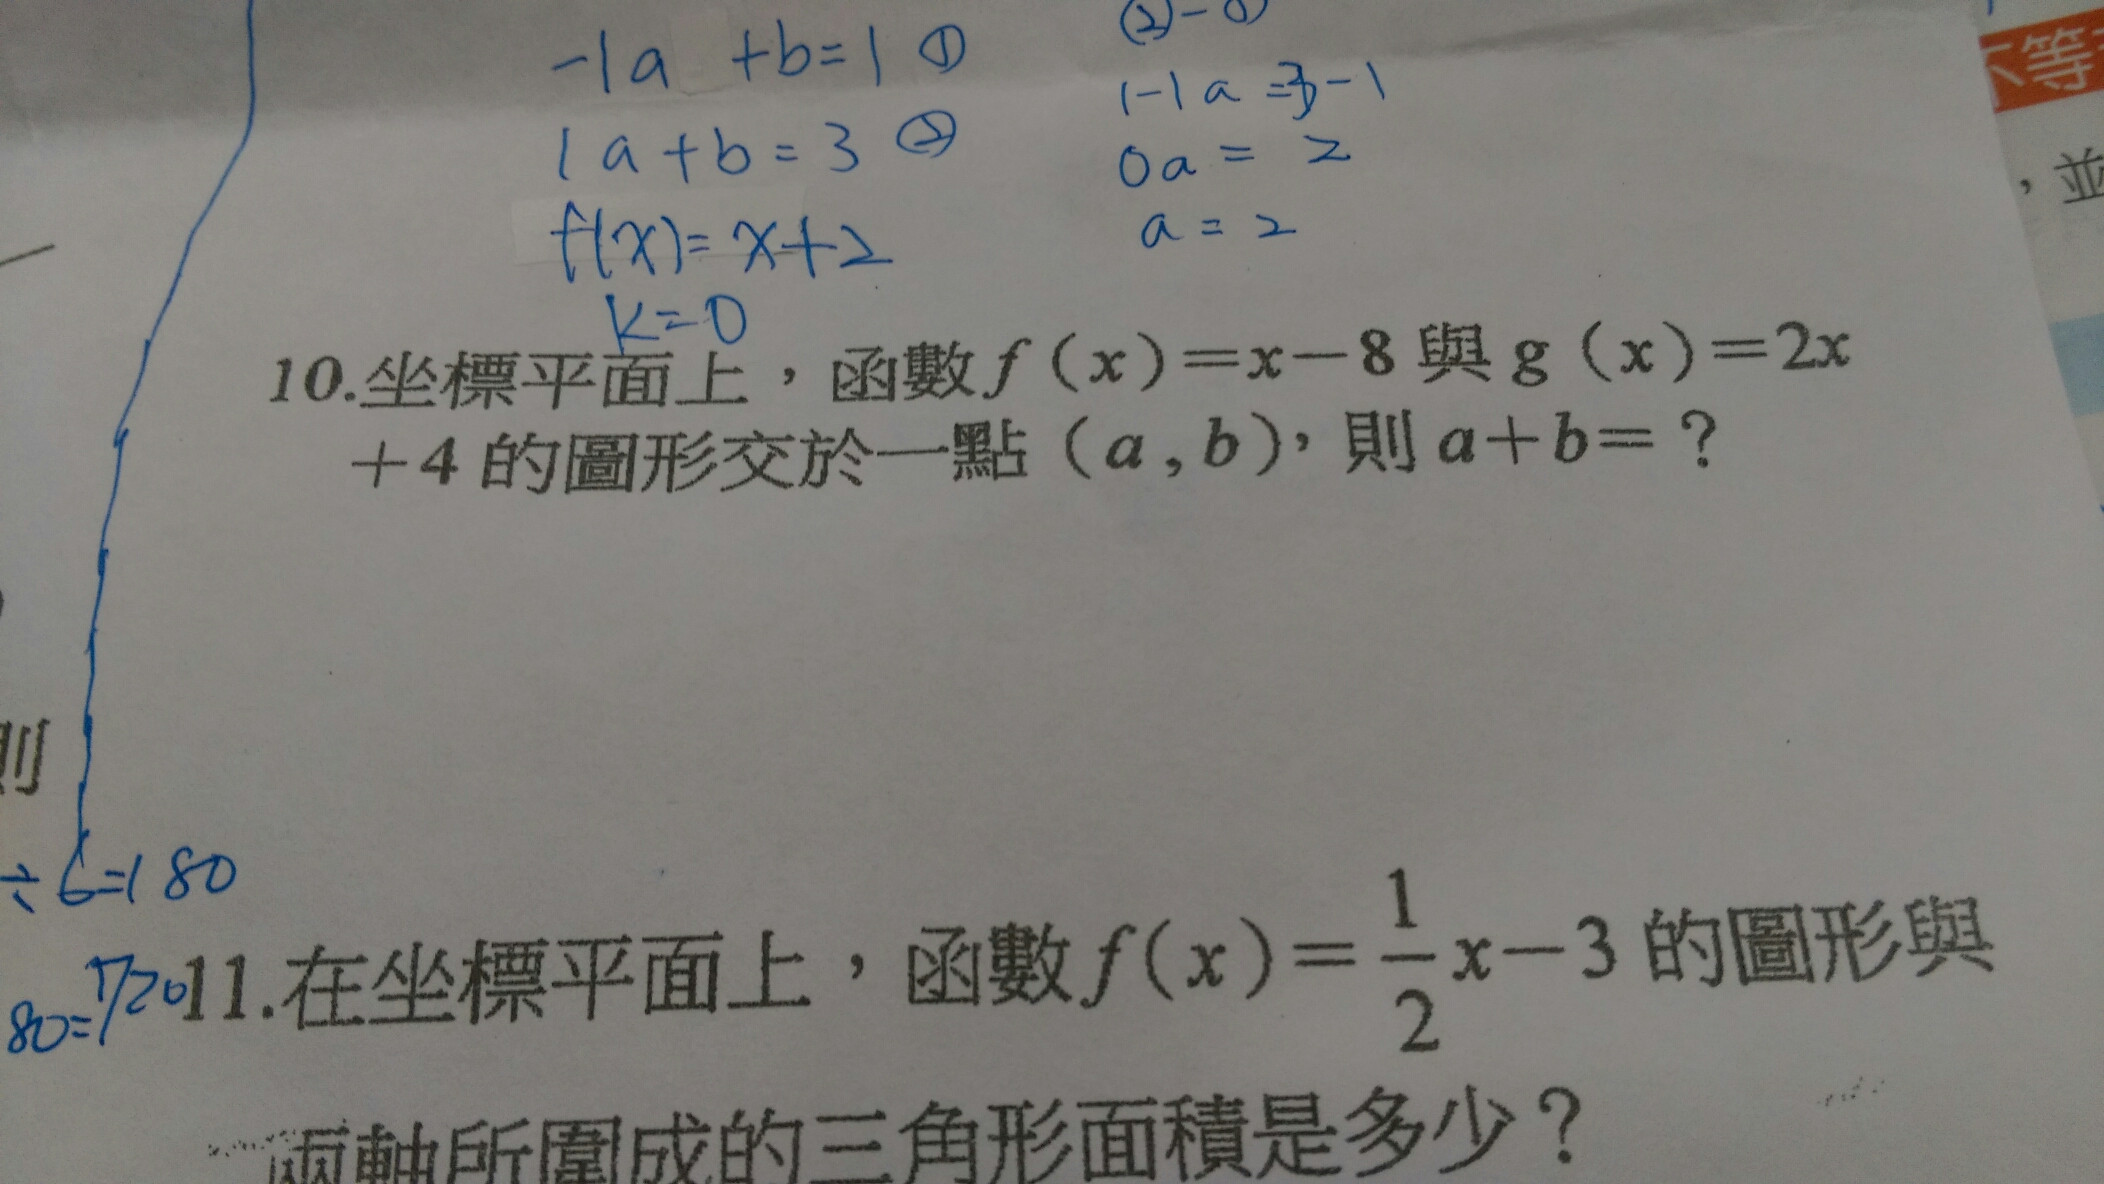 -1a +b=1 ①
1a+b=3 ②
f(x)=x+2
k=0
②-①
1-1a=3-1
0a= 2
a=2
不等
,並
10.坐標平面上,函數f(x)=x-8與g(x)=2x
+4的圖形交於一點(a,b),則a+b=?
則
÷6=180
80=720
11.在坐標平面上,函數f(x)=1/2x-3的圖形與
兩軸所圍成的三角形面積是多少?